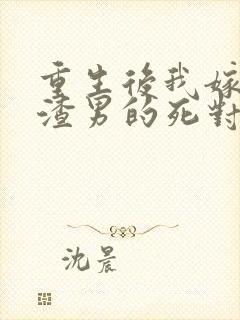 重生後我嫁
渣男的死對
沈晨